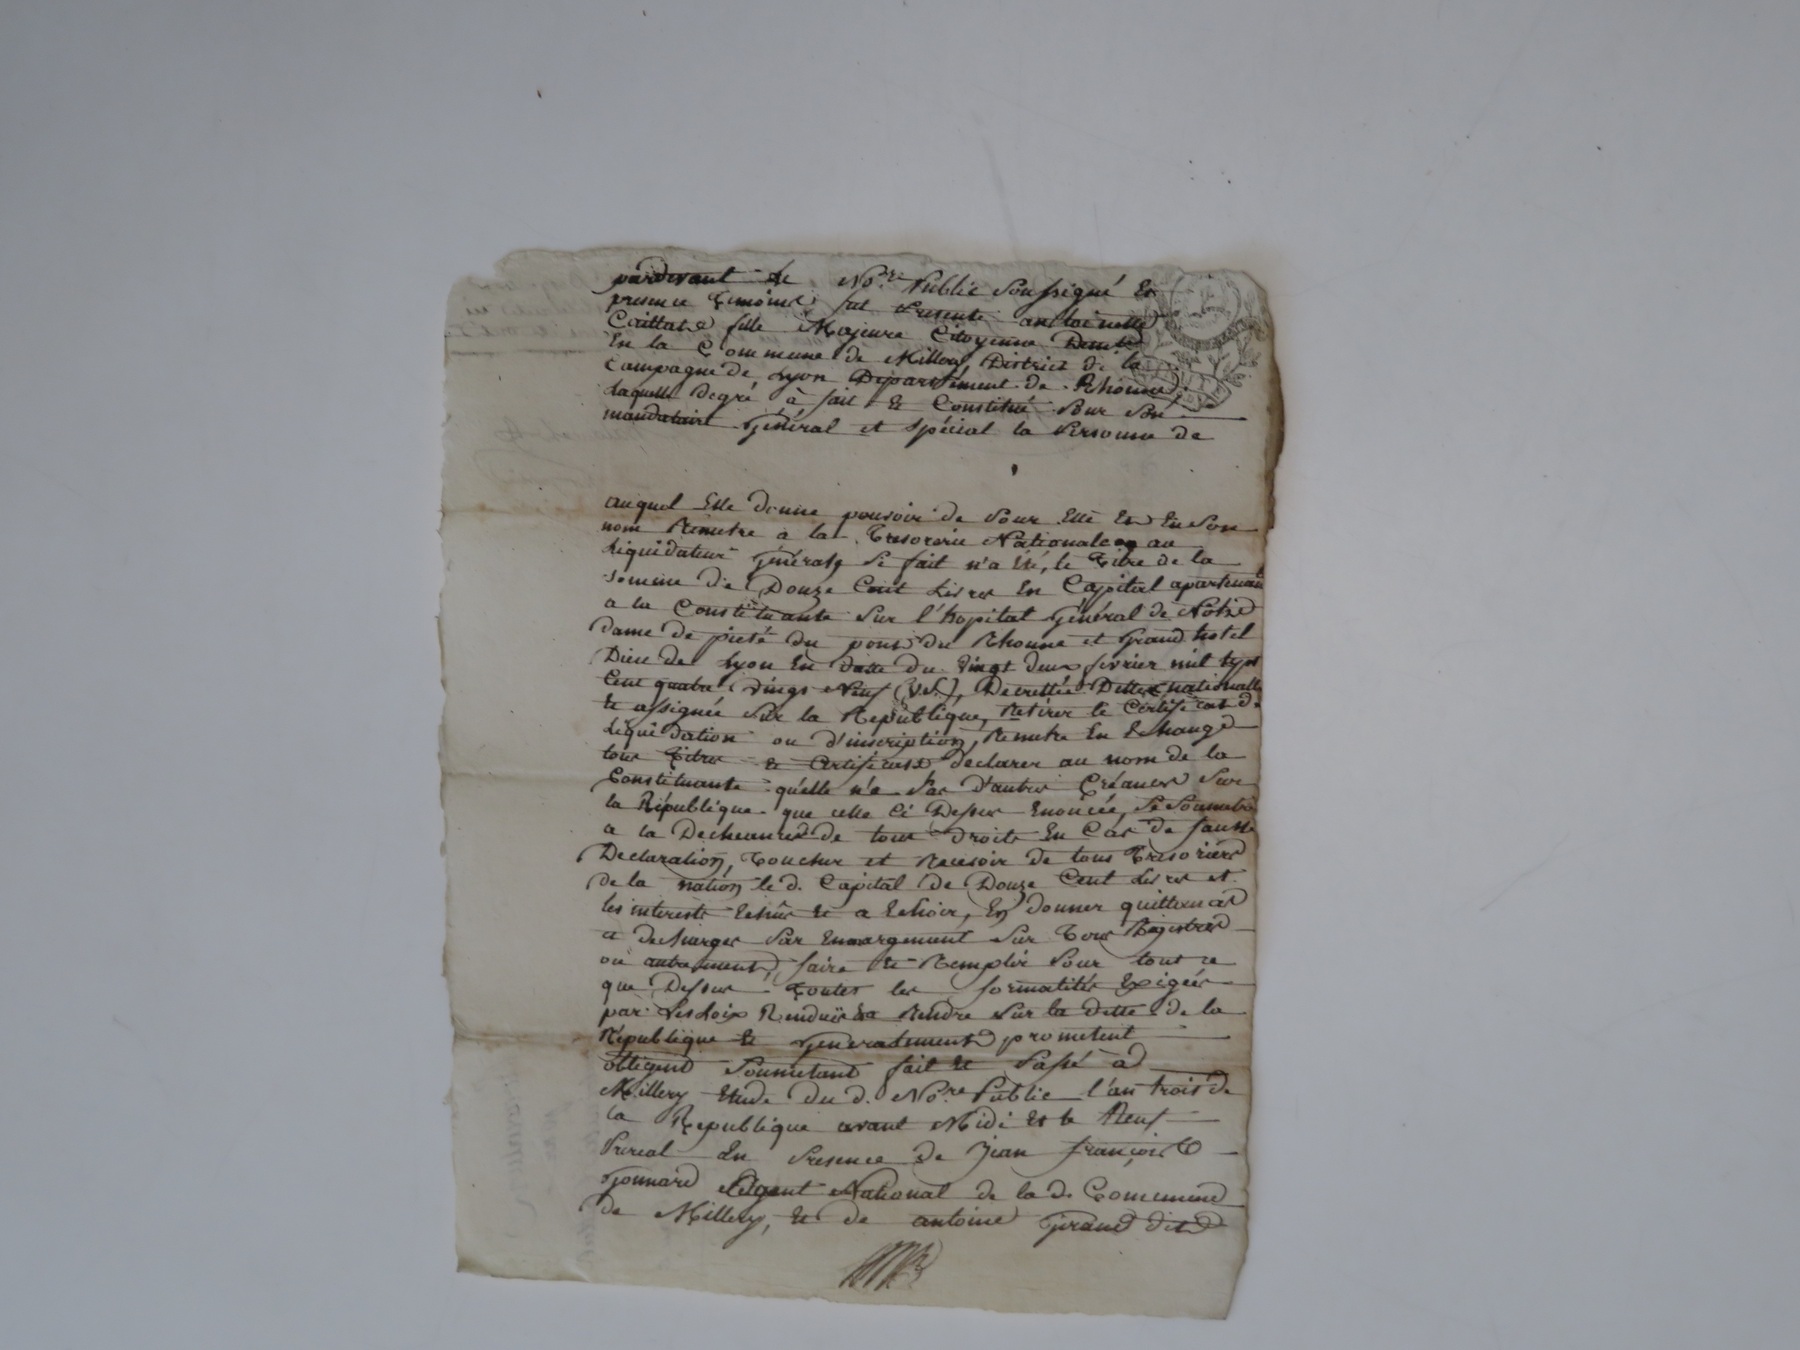 pardevant le No.re Public Soussigné En
presence Temoins, fut Presente antoinette
Caillat fille Majeure Citoyenne Demte
En la Commune de Millery District de la
Campagne de Lyon Departement de Rhonne,
laquelle Degré à fait & Constitué Pour Son
mandataire Général et Spécial la Personne de
auquel Elle donne pouvoir de Pour Elle En En Son
nom Remetre a la Tresorerie Nationale ou au
Liquidateur Général, Se fait n'a Eté, le Titre de la
somme de Douze Cent Livres En Capital apartenant
a la Constituante Sur l'hopital Général de Notre
dame de pieté du pont du Rhonne et Grand hotel
Dieu de Lyon En datte du vingt deux fevrier mil sept
Cent quatre vingt Neuf (V.S.), Decrettée Dette nationalle
& assignée Sur la Republique, Retirer le Certificat de
Liquidation ou d'inscription, Remetre En Echange
tous Titres & Certificats declarer au nom de la
Constituante qu'elle n'a Pas D'autres Créances Sur
la République que celle Ci Dessus Enoncée, Se Soumetre
a la Decheance de tous droits En Cas de fausse
Declaration, Toucher et Recevoir de tous Tresoriers
de la nation le d. Capital de Douze Cent Livres et
les interests Echûs & a Echoir, En donner quittances
et decharges Par Emargement Sur Tous Registres
ou autrement, faire & Remplir Pour tout ce
que Dessus Toutes les formalités Exigées
par Les Loix Rendues & a Rendre Sur la dette de la
République & Generalement prometent
obligent Soumetant fait & Passé à
Millery Etude du d. No.re Public l'an trois de
la Republique avant Midi & le Neuf
Prereal En Presence de Jean François
Gonnard Agent National de la d. Commune
de Millery, & de antoine Giraud dit